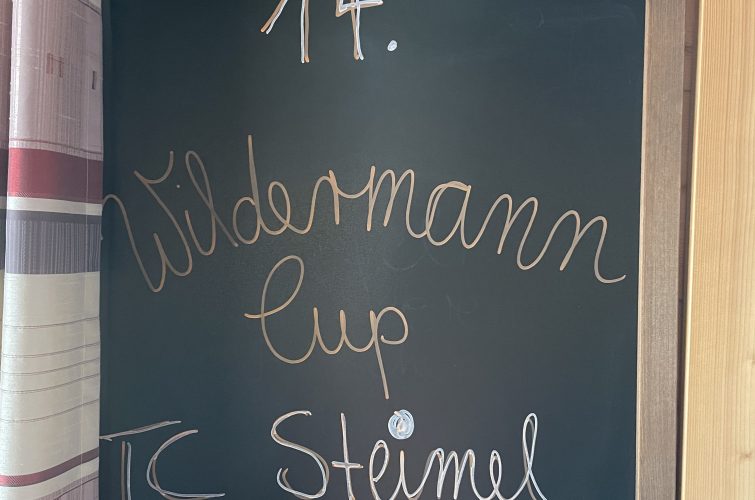 14.
Wildermann
Cup
TC Steimel